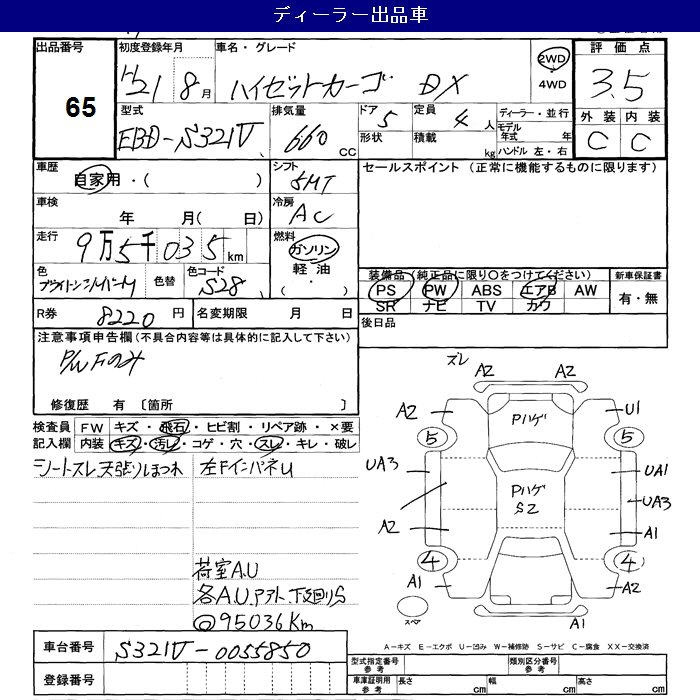 ディーラー出品車
出品番号
65
初度登録年月
H21年8月
車名・グレード
ハイゼットカーゴ DX
2WD
4WD
評価点
3.5
外装 内装
C C
型式
EBD-S321V
排気量
660 CC
ドア 5
形状
定員 4人
積載 kg
ディーラー・並行
モデル年式 年
ハンドル 左・右
車歴
自家用・( )
シフト
5MT
セールスポイント (正常に機能するものに限ります)
車検
年 月( 日)
冷房
AC
走行
9万5千035km
燃料
ガソリン
軽油
( ・ )
色
ブライトシルバーM
色替
色コード
S28
装備品(純正品に限り○をつけてください)
PS PW ABS エアB AW
SR ナビ TV カワ
新車保証書
有・無
R券 8220円
名変期限 月 日
後日品
注意事項申告欄(不具合内容等は具体的に記入して下さい)
P/W Fのみ
修復歴 有 〔箇所 〕
検査員 FW キズ・飛石・ヒビ割・リペア跡・×要
記入欄 内装 キズ・汚レ・コゲ・穴・スレ・キレ・破レ
シートスレ 天張りほつれ
左FインパネU
荷室A.U
各A.U.アプト.下廻りS
@95036Km
ズレ
A2 A2
A2 Pハゲ U1
5 5
UA3 UA1
Pハゲ
S2
UA3
A2 A1
4 4
A1 A2
スペア
A1
A-キズ E-エクボ U-凹み W-補修跡 S-サビ C-腐食 XX-交換済
車台番号 S321V-0055850
登録番号
型式指定番号
参考
類別区分番号
参考
車庫証明用
参考
長さ cm 幅 cm 高さ cm